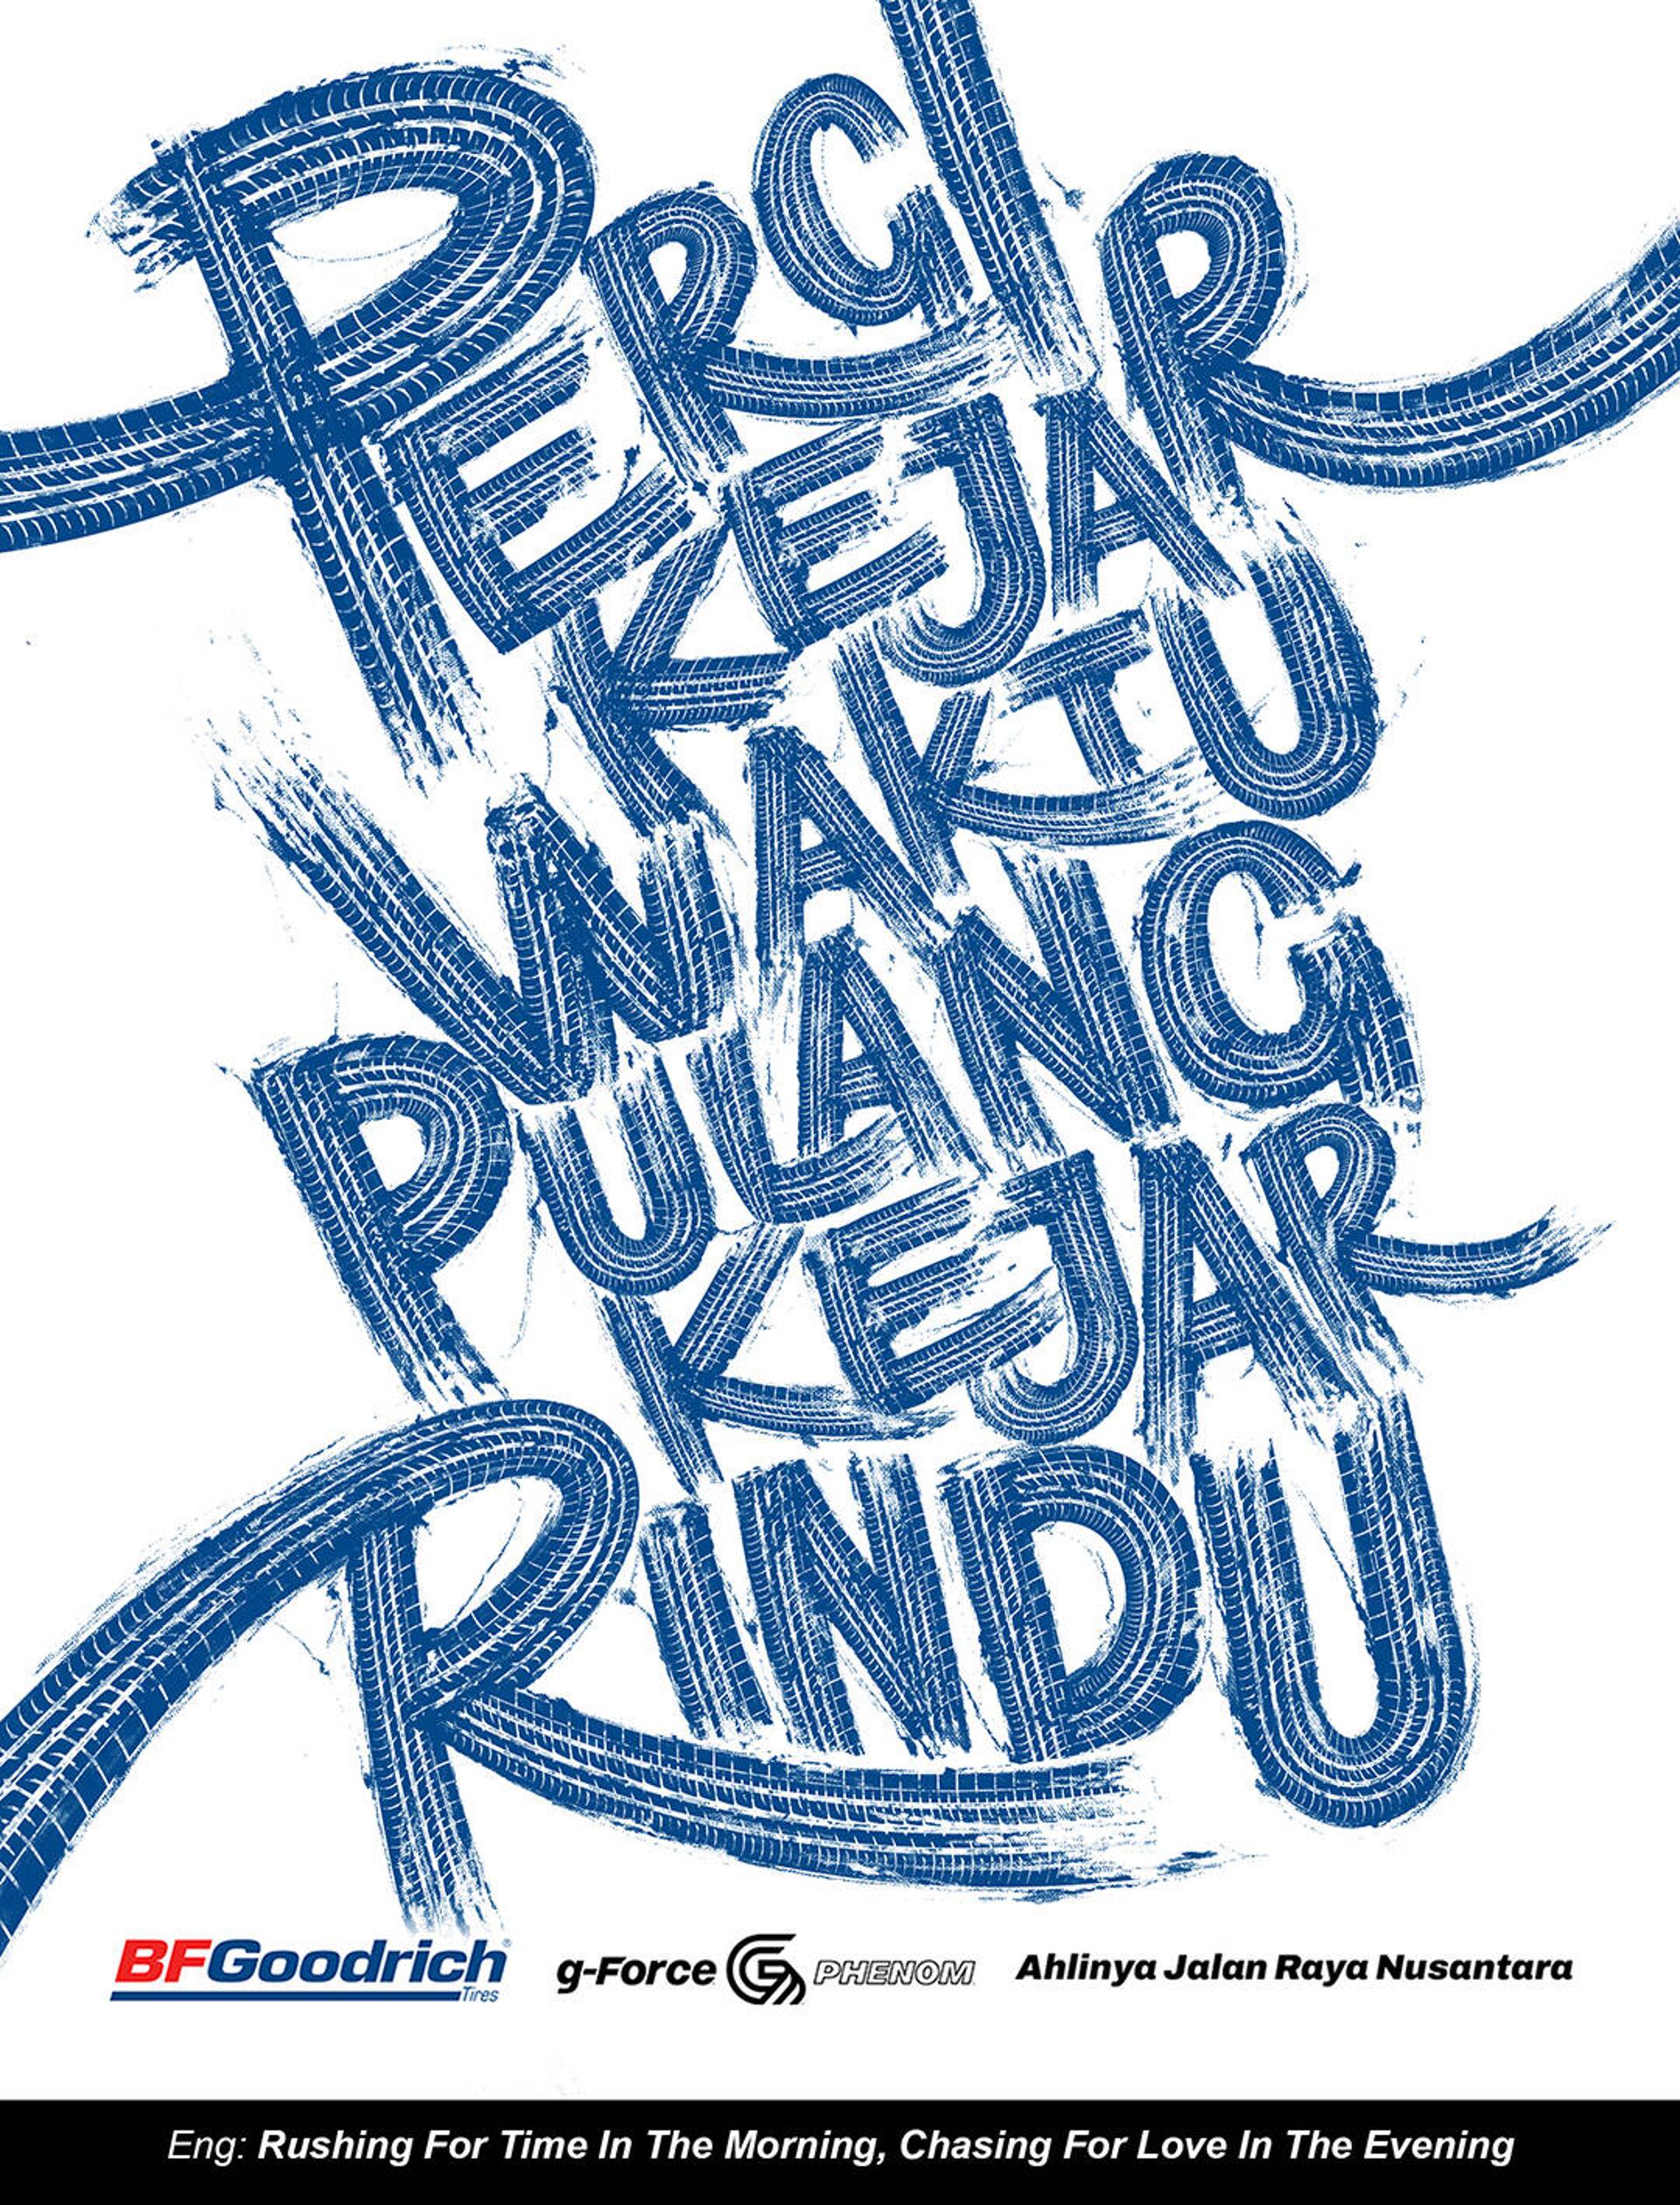 PERGI
KEJAR
WAKTU
PULANG
KEJAR
RINDU
BFGoodrich® Tires g-Force PHENOM Ahlinya Jalan Raya Nusantara
Eng: Rushing For Time In The Morning, Chasing For Love In The Evening